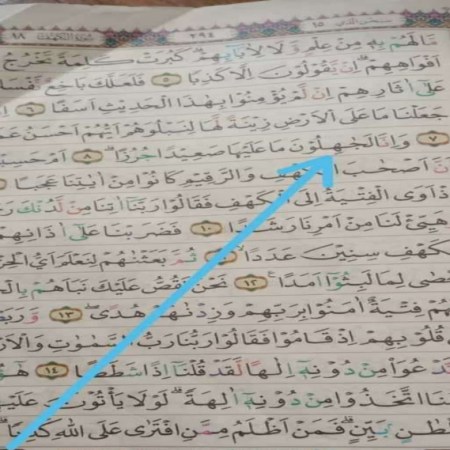 سُبْحٰنَ الَّذِي ١٥ ٢٩٤ سُورَةُ الْكَهْفِ ١٨
مَّا لَهُم بِهِۦ مِنْ عِلْمٍ وَّلَا لِأٰبَآئِهِمْ ۚ كَبُرَتْ كَلِمَةً تَخْرُجُ
أَفْوَاهِهِمْ ۚ إِن يَّقُولُونَ إِلَّا كَذِبًا ٥ فَلَعَلَّكَ بَاخِعٌ نَّفْسَ
عَلَىٰٓ أٰثَارِهِمْ إِن لَّمْ يُؤْمِنُوا بِهٰذَا الْحَدِيثِ أَسَفًا ٦
جَعَلْنَا مَا عَلَى الْأَرْضِ زِينَةً لَّهَا لِنَبْلُوَهُمْ أَيُّهُمْ أَحْسَنُ عَمَ
٧ وَإِنَّا لَجٰهِلُونَ مَا عَلَيْهَا صَعِيدًا جُرُزًا ۗ ٨ أَمْ حَسِبْ
نَّ أَصْحٰبَ الْكَهْفِ وَالرَّقِيمِ كَانُوا مِنْ أٰيٰتِنَا عَجَبًا
ذْ أَوَى الْفِتْيَةُ إِلَى الْكَهْفِ فَقَالُوا رَبَّنَا أٰتِنَا مِن لَّدُنكَ رَ
هَيِّئْ لَنَا مِنْ أَمْرِنَا رَشَدًا ١٠ فَضَرَبْنَا عَلَىٰٓ أٰذَانِهِمْ
كَهْفِ سِنِينَ عَدَدًا ۙ ١١ ثُمَّ بَعَثْنٰهُمْ لِنَعْلَمَ أَيُّ الْحِزْ
حْصٰى لِمَا لَبِثُوٓا أَمَدًا ۚ ١٢ نَحْنُ نَقُصُّ عَلَيْكَ نَبَأَهُم بِالْحَ
هُمْ فِتْيَةٌ أٰمَنُوا بِرَبِّهِمْ وَزِدْنٰهُمْ هُدًى ۖ ١٣ وَّرَبَطْ
قُلُوبِهِمْ إِذْ قَامُوا فَقَالُوا رَبُّنَا رَبُّ السَّمٰوٰتِ وَالْأَرْ
نَّدْعُوَا مِن دُونِهِۦٓ إِلٰهًا لَّقَدْ قُلْنَآ إِذًا شَطَطًا ١٤ هٰٓؤُ
نَا اتَّخَذُوا مِن دُونِهِۦٓ أٰلِهَةً ۗ لَوْلَا يَأْتُونَ عَلَيْهِ
لْطٰنٍ بَيِّنٍ ۗ فَمَنْ أَظْلَمُ مِمَّنِ افْتَرٰى عَلَى اللّٰهِ كَذِبًا